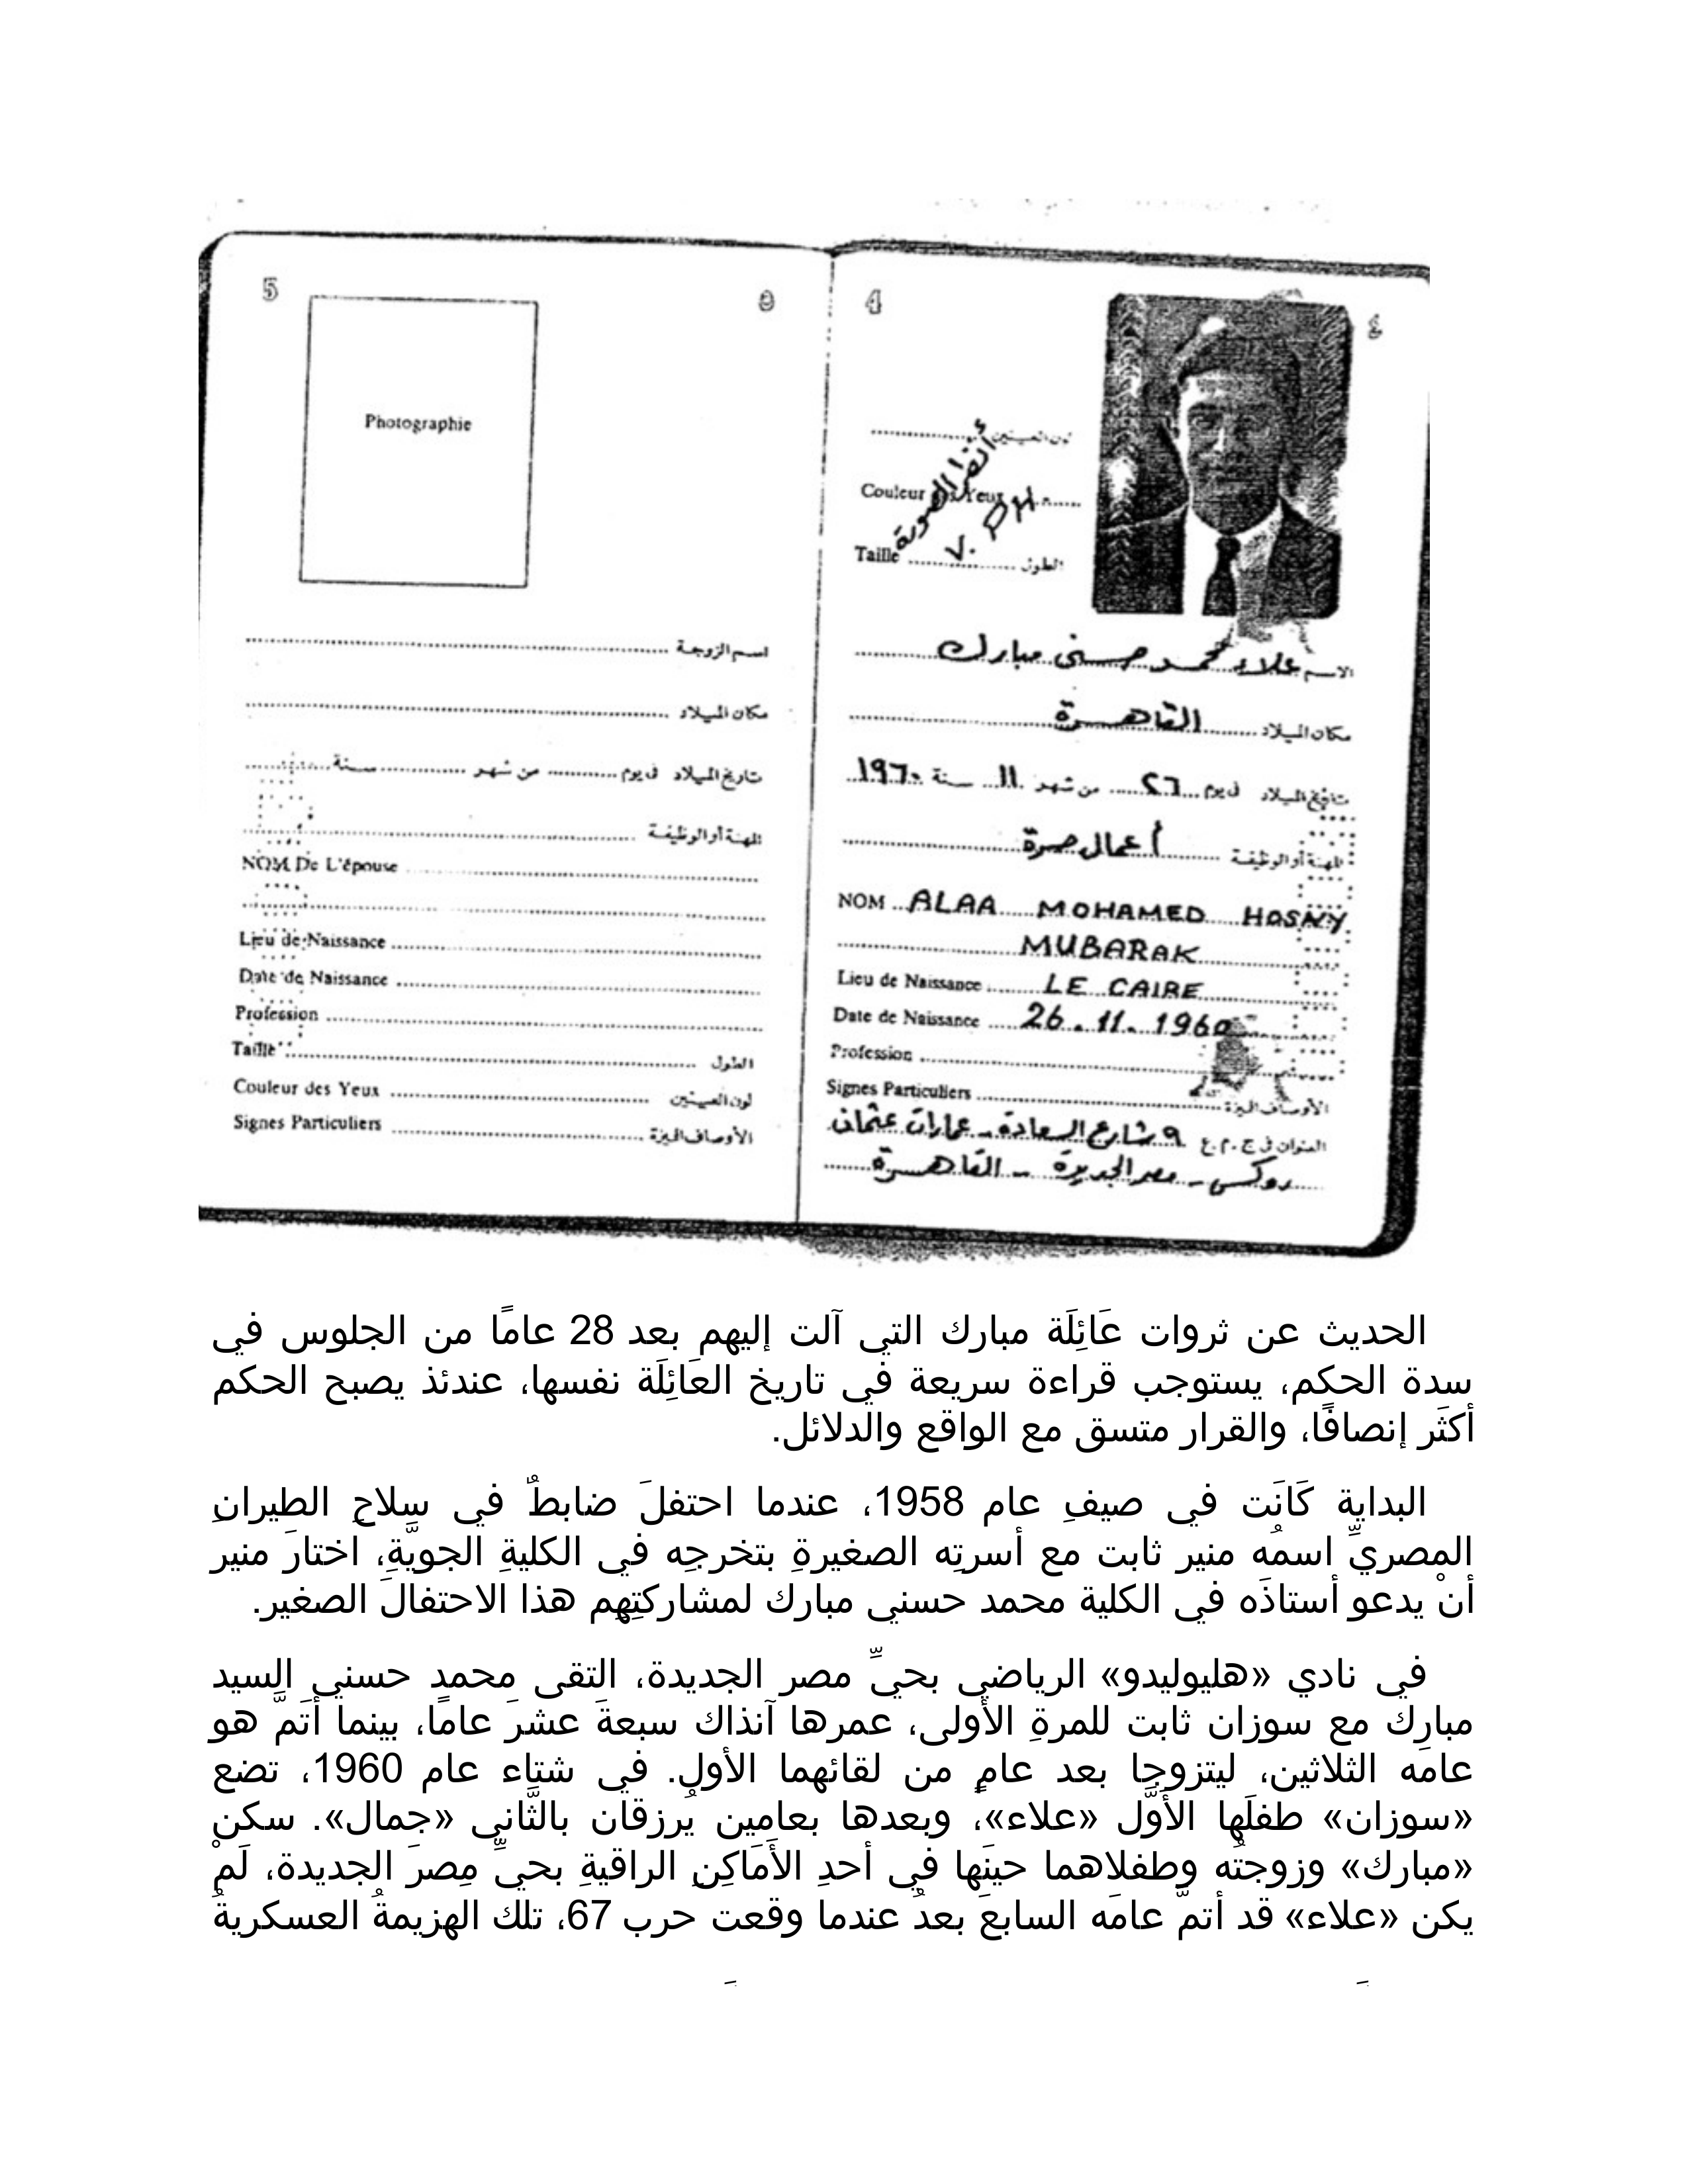 5
4
٤
Photographie
لون العينين
Couleur des Yeux
أنظر الصورة
V. PH
Taille الطول
الاسم علاء محمد حسنى مبارك
مكان الميلاد القاهرة
تاريخ الميلاد فى يوم ٢٦ من شهر ١١ سنة ١٩٦٠
المهنة أو الوظيفة أعمال حرة
NOM ALAA MOHAMED HOSNY
MUBARAK
Lieu de Naissance LE CAIRE
Date de Naissance 26.11.1960
Profession
Signes Particuliers الأوصاف المميزة
العنوان فى ج.م.ع ٩ شارع السعادة - عمارات عثمان
روكسى - مصر الجديدة - القاهرة
اسم الزوجة
مكان الميلاد
تاريخ الميلاد فى يوم من شهر سنة
المهنة أو الوظيفة
NOM De L'épouse
Lieu de Naissance
Date de Naissance
Profession
Taille الطول
Couleur des Yeux لون العينين
Signes Particuliers الأوصاف المميزة
الحديث عن ثروات عَائِلَة مبارك التي آلت إليهم بعد 28 عامًا من الجلوس في
سدة الحكم، يستوجب قراءة سريعة في تاريخ العَائِلَة نفسها، عندئذ يصبح الحكم
أكثَر إنصافًا، والقرار متسق مع الواقع والدلائل.
البداية كَانَت في صيفِ عام 1958، عندما احتفلَ ضابطٌ في سِلاحِ الطيرانِ
المصريِّ اسمُه منير ثابت مع أسرتِه الصغيرةِ بتخرجِه في الكليةِ الجويَّةِ، اختارَ منير
أنْ يدعو أستاذَه في الكلية محمد حسني مبارك لمشاركتِهِم هذا الاحتفالَ الصغير.
في نادي «هليوليدو» الرياضي بحيِّ مصر الجديدة، التقى محمد حسني السيد
مبارك مع سوزان ثابت للمرةِ الأولى، عمرها آنذاك سبعةَ عشرَ عامًا، بينما أتَمَّ هو
عامَه الثلاثين، ليتزوجا بعد عامٍ من لقائهما الأولِ. في شتاء عام 1960، تضع
«سوزان» طفلَها الأَوَّل «علاء»، وبعدها بعامين يُرزقان بالثَّاني «جمال». سكن
«مبارك» وزوجتُه وطفلاهما حينَها في أحدِ الأَمَاكِنِ الراقيةِ بحيِّ مِصرَ الجديدة، لَمْ
يكن «علاء» قد أتمَّ عامَه السابعَ بعدُ عندما وقعت حرب 67، تلك الهزيمةُ العسكريةُ